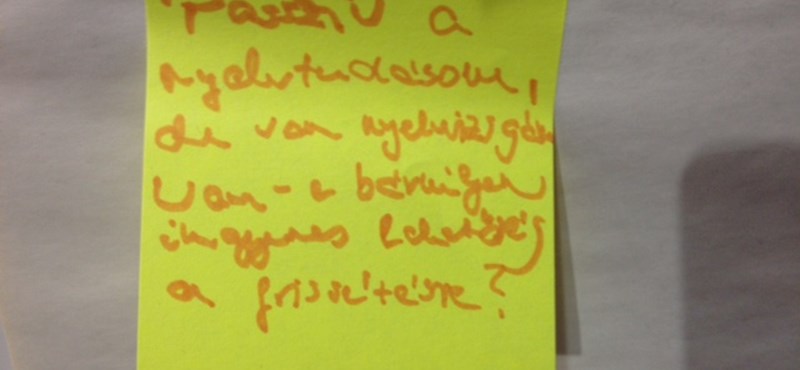 Passzív a
nyelvtudásom,
de van nyelvvizsgám
Van-e bármilyen
ingyenes lehetőség
a frissítésre?